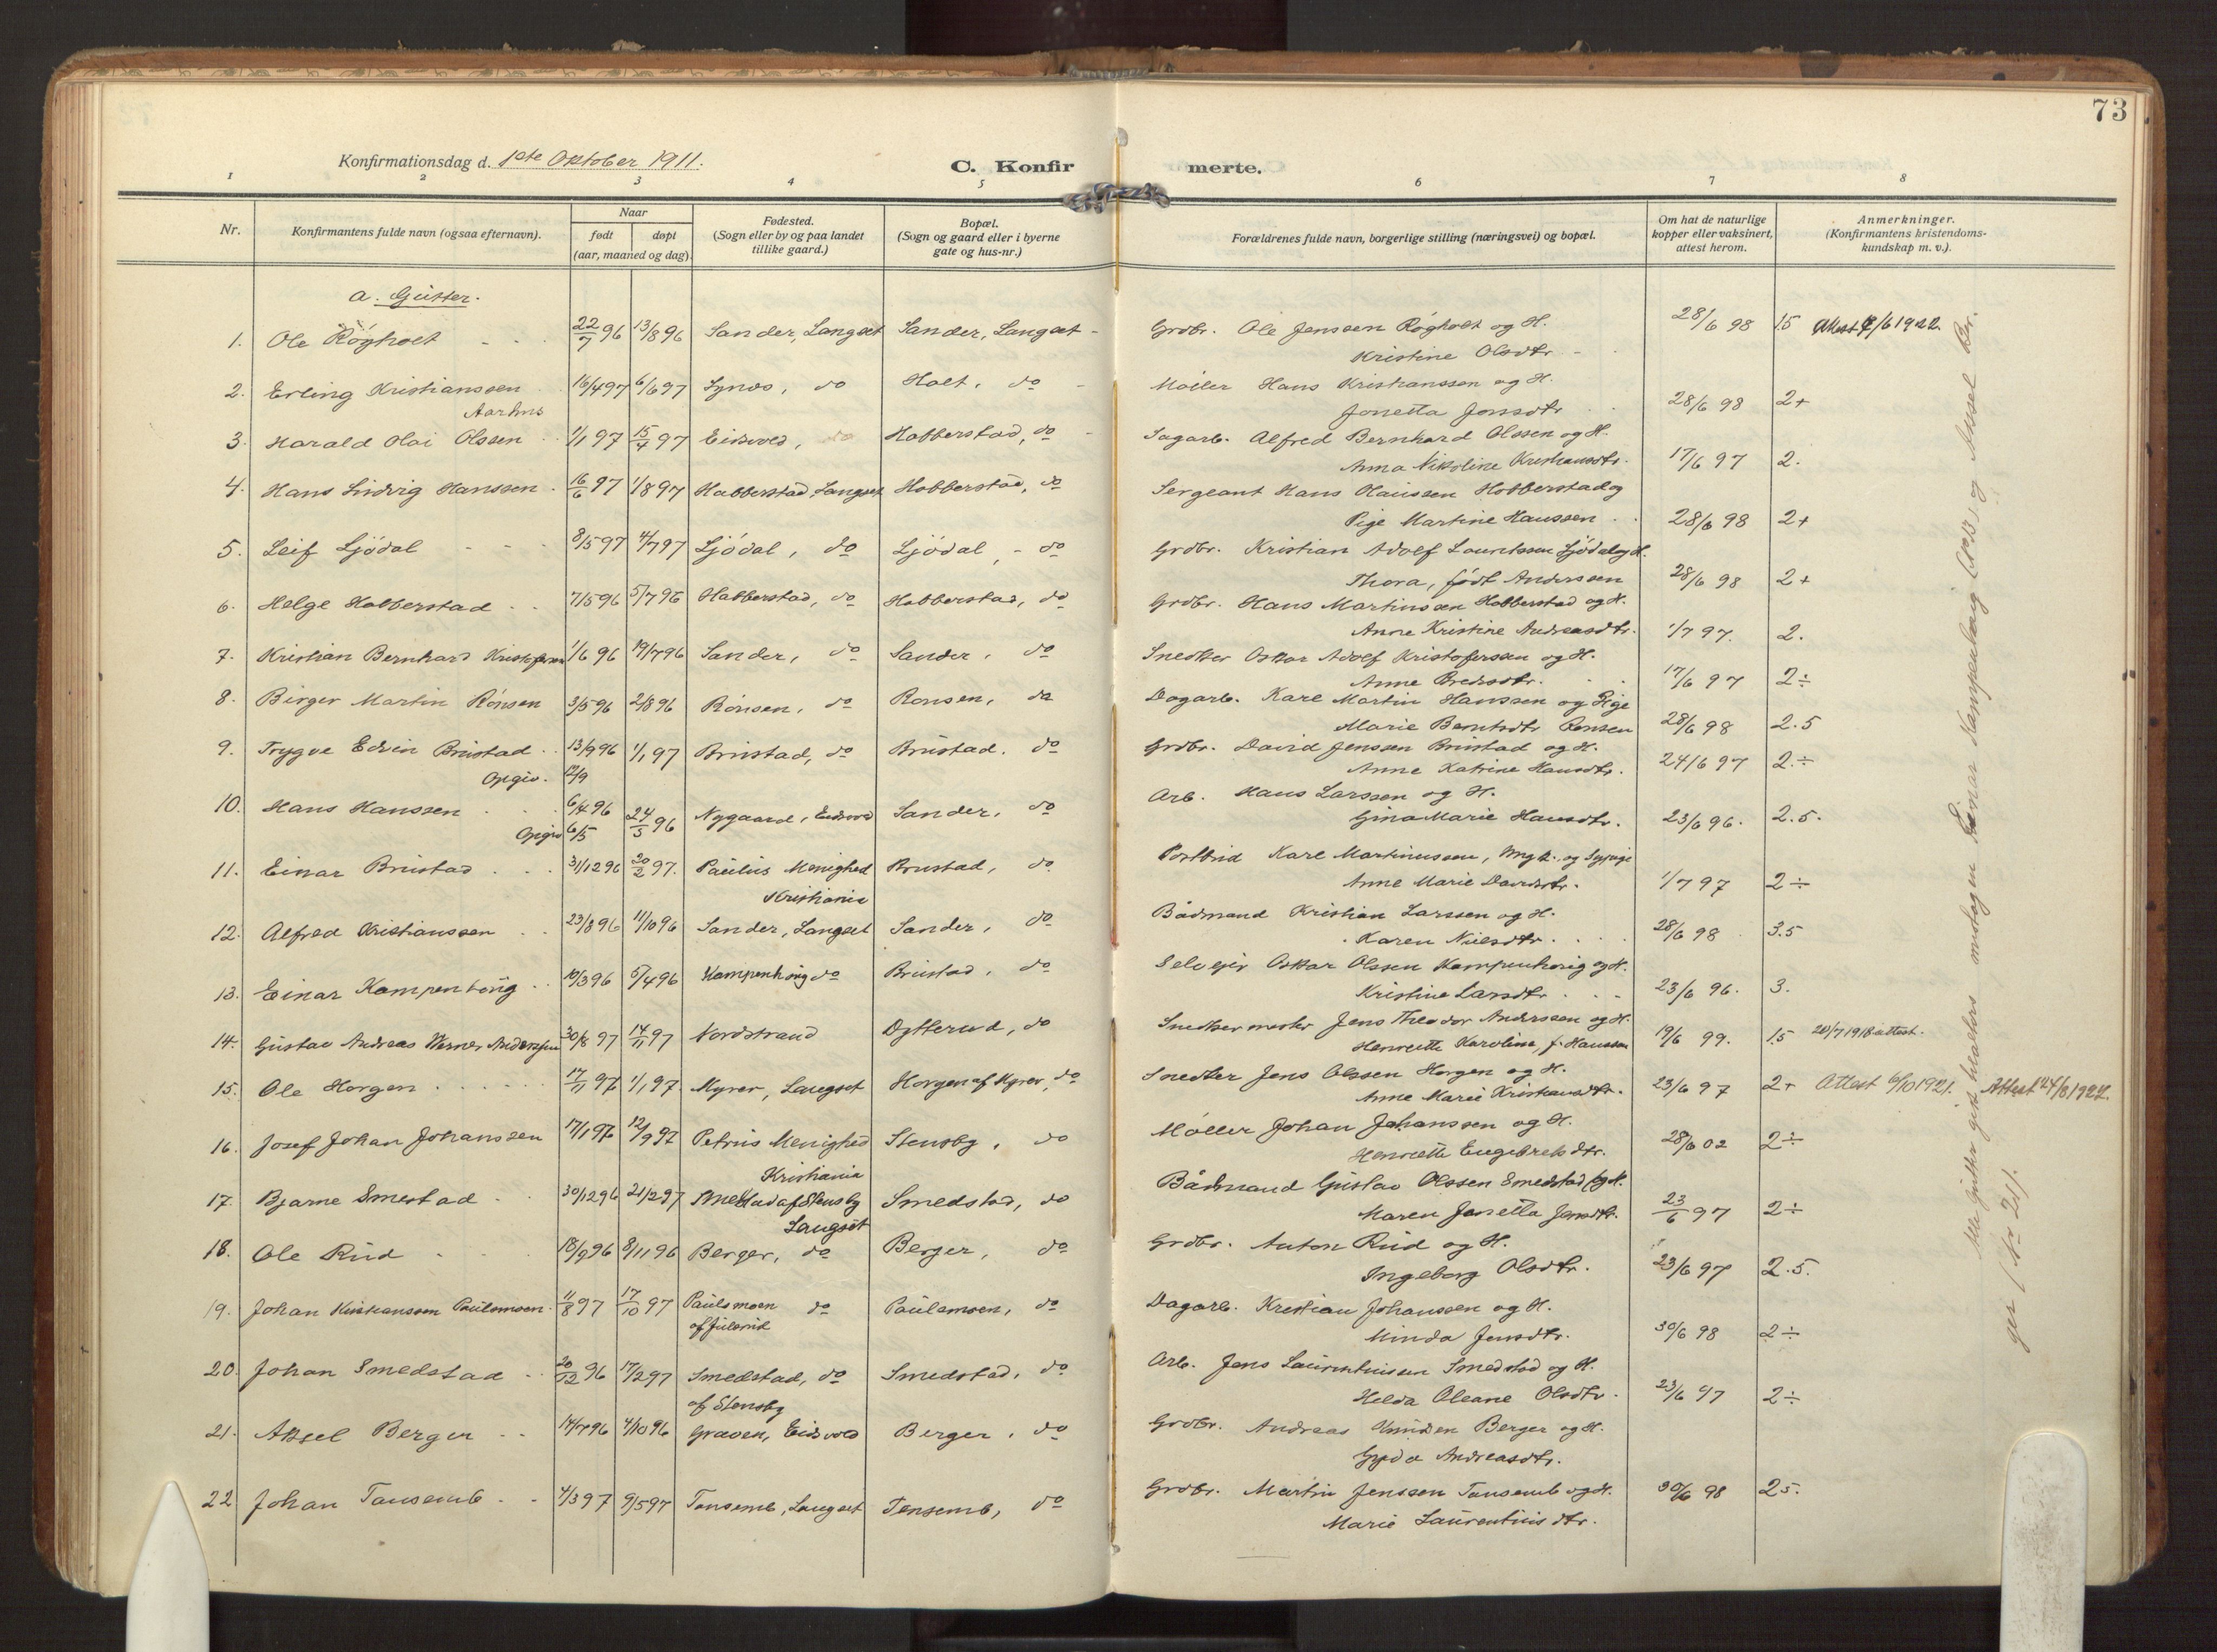 73
Konfirmationsdag d. 1ste Oktober 1911.
C. Konfirmerte.
1 2 3 4 5 6 7 8
Nr. Konfirmantens fulde navn (ogsaa efternavn). Naar født døpt (aar, maaned og dag) Fødested. (Sogn eller by og paa landet tillike gaard.) Bopæl. (Sogn og gaard eller i byerne gate og hus-nr.) Forældrenes fulde navn, borgerlige stilling (næringsvei) og bopæl. Om hat de naturlige kopper eller vaksinert, attest herom. Anmerkninger. (Konfirmantens kristendoms-kundskap m. v.).
a. Gutter.
1. Ole Rögholt 22/7 96 13/8 96 Sander, Langset Sander, Langset Grdbr. Ole Jenssen Rögholt og H. 28/6 98 1.5 Attest /6 1922.
Kristine Olsdtr.
2. Erling Kristianssen 16/4 97 6/6 97 Synds, do Holt, do Möller Hans Kristianssen og H.
Aarhus Jonetta Jensdtr 28/6 98 2+
3. Harald Olai Olssen 1/1 97 15/4 97 Eidsvold, do Habberstad, do Sagarb. Alfred Bernhard Olssen og H.
Anna Nikoline Kristiansdtr. 17/6 97 2.
4. Hans Ludvig Hanssen 16/6 97 1/8 97 Habberstad, Langset Habberstad, do Sergeant Hans Olaussen Habberstad og
Pige Martine Hanssen 28/6 98 2+
5. Leif Ljödal 8/5 97 4/7 97 Ljödal, do Ljödal, do Grdbr. Kristian Adolf Lauritssen Ljödal og H.
Thora, født Anderssen 28/6 98 2+
6. Helge Habberstad 7/5 96 5/7 96 Habberstad, do Habberstad, do Grdbr. Hans Martinssen Habberstad og H.
Anne Kristine Andreasdtr. 1/7 97. 2.
7. Kristian Bernhard Kristofersen 1/6 96 19/7 96 Sander, do Sander, do Snedker Oskar Adolf Kristoferssen og H.
Anne Pedersdtr. 17/6 97 2÷
8. Birger Martin Rönsen 3/5 96 2/8 96 Rönsen, do Ronsen, do Dagarb. Karl Martin Hanssen og Pige
Marie Berntsdtr Ronsen 28/6 98 2.5
9. Trygve Edvin Brustad 13/9 96 1/1 97 Brustad, do Brustad, do Grdbr. David Jenssen Brustad og H.
Opgiv. 12/9 Anne Katrine Hansdtr. 24/6 97 2.÷
10. Hans Hanssen 6/4 96 24/5 96 Nygaard, Eidsvold Sander, do Arb. Hans Larssen og H.
Opgiv 6/5 Gina Marie Hansdtr. 23/6 96. 2.5.
11. Einar Brustad 31/12 96 20/2 97. Paulus Menighed Brustad, do Postbud Karl Martinussen, Ungk. og Sypige
Kristiania Anne Marie Davidsdtr. 1/7 97 2÷
12. Alfred Kristianssen 23/8 96 11/10 96 Sander, Langset Sander, do Bådmand Kristian Larssen og H.
Karen Nielsdtr. 28/6 98 3.5
13. Einar Kampenhöug 10/3 96 5/4 96 Kampenhöug do Brustad, do Selveier Oskar Olssen Kampenhaug og H.
Kristine Larsdtr. 23/6 96. 3.
14. Gustav Andreas Werner Anderssen 30/8 97 14/11 97 Nordstrand Dytterud, do Snedkermester Jens Theodor Anderssen og H.
Henriette Karoline, f. Hanssen 19/6 99. 1.5 20/7 1918 attest.
15. Ole Horgen 17/11 97 1/1 97. Myrer, Langset Horgen af Myrer, do Snedker Jens Olssen Horgen og H.
Anne Marie Kristiansdtr. 23/6 97 2+ Attest 6/10 1921. Attest 24/8 1927.
16. Josef Johan Johanssen 17/1 97 12/9 97 Petrus Menighed Stensby, do Möller Johan Johanssen og H.
Kristiania Henriette Engebretsdtr. 28/6 02 2÷
17. Bjarne Smestad 30/12 96 21/2 97 Smedstad af Stensby Smedstad, do Bådmand Gustav Olssen Smedstad og H.
Langset Maren Jonetta Jensdtr. 23/6 97 2÷
18. Ole Rud 18/9 96 8/11 96 Berger, do Berger, do Grdbr. Anton Rud og H.
Ingeborg Olsdtr. 23/6 97 2.5.
19. Johan Kristianssen Paulsmoen 11/8 97 17/10 97 Paulsmoen do Paulsmoen, do Dagarb. Kristian Johanssen og H.
af Julsrud Minda Jensdtr. 30/6 98 2÷
20. Johan Smedstad 20/12 96 17/2 97 Smedstad, do Smedstad, do Arb. Jens Laurentiussen Smedstad og H.
af Stensby Helda Oleane Olsdtr. 23/6 97 2÷
21. Aksel Berger 14/7 96 4/10 96 Graven, Eidsvold Berger, do Grdbr. Andreas Knudsen Berger og H.
Gyda Andreasdtr.
22 Johan Tansemb 4/3 97 9/5 97 Tansemb, Langset Tansemb, do Grdbr. Martin Jenssen Tansemb og H. 30/6 98 2.5.
Marie Laurentiusdtr.
Alle gutter git bibelens undtagen Einar Kampenhaug (No 13) og Aksel Ber-
ger (No 21).